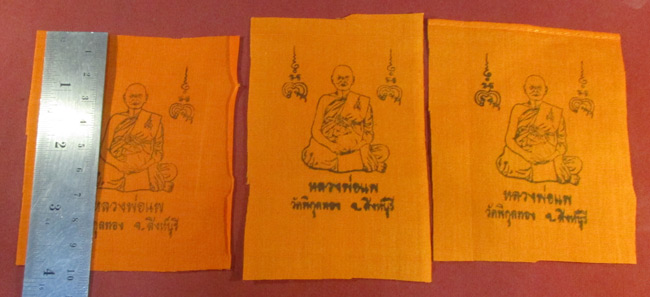 1
2
3
4
1
2
3
4
5
6
7
8
9
10
หลวงพ่อแพ
วัดพิกุลทอง จ.สิงห์บุรี
หลวงพ่อแพ
วัดพิกุลทอง จ.สิงห์บุรี
หลวงพ่อแพ
วัดพิกุลทอง จ.สิงห์บุรี